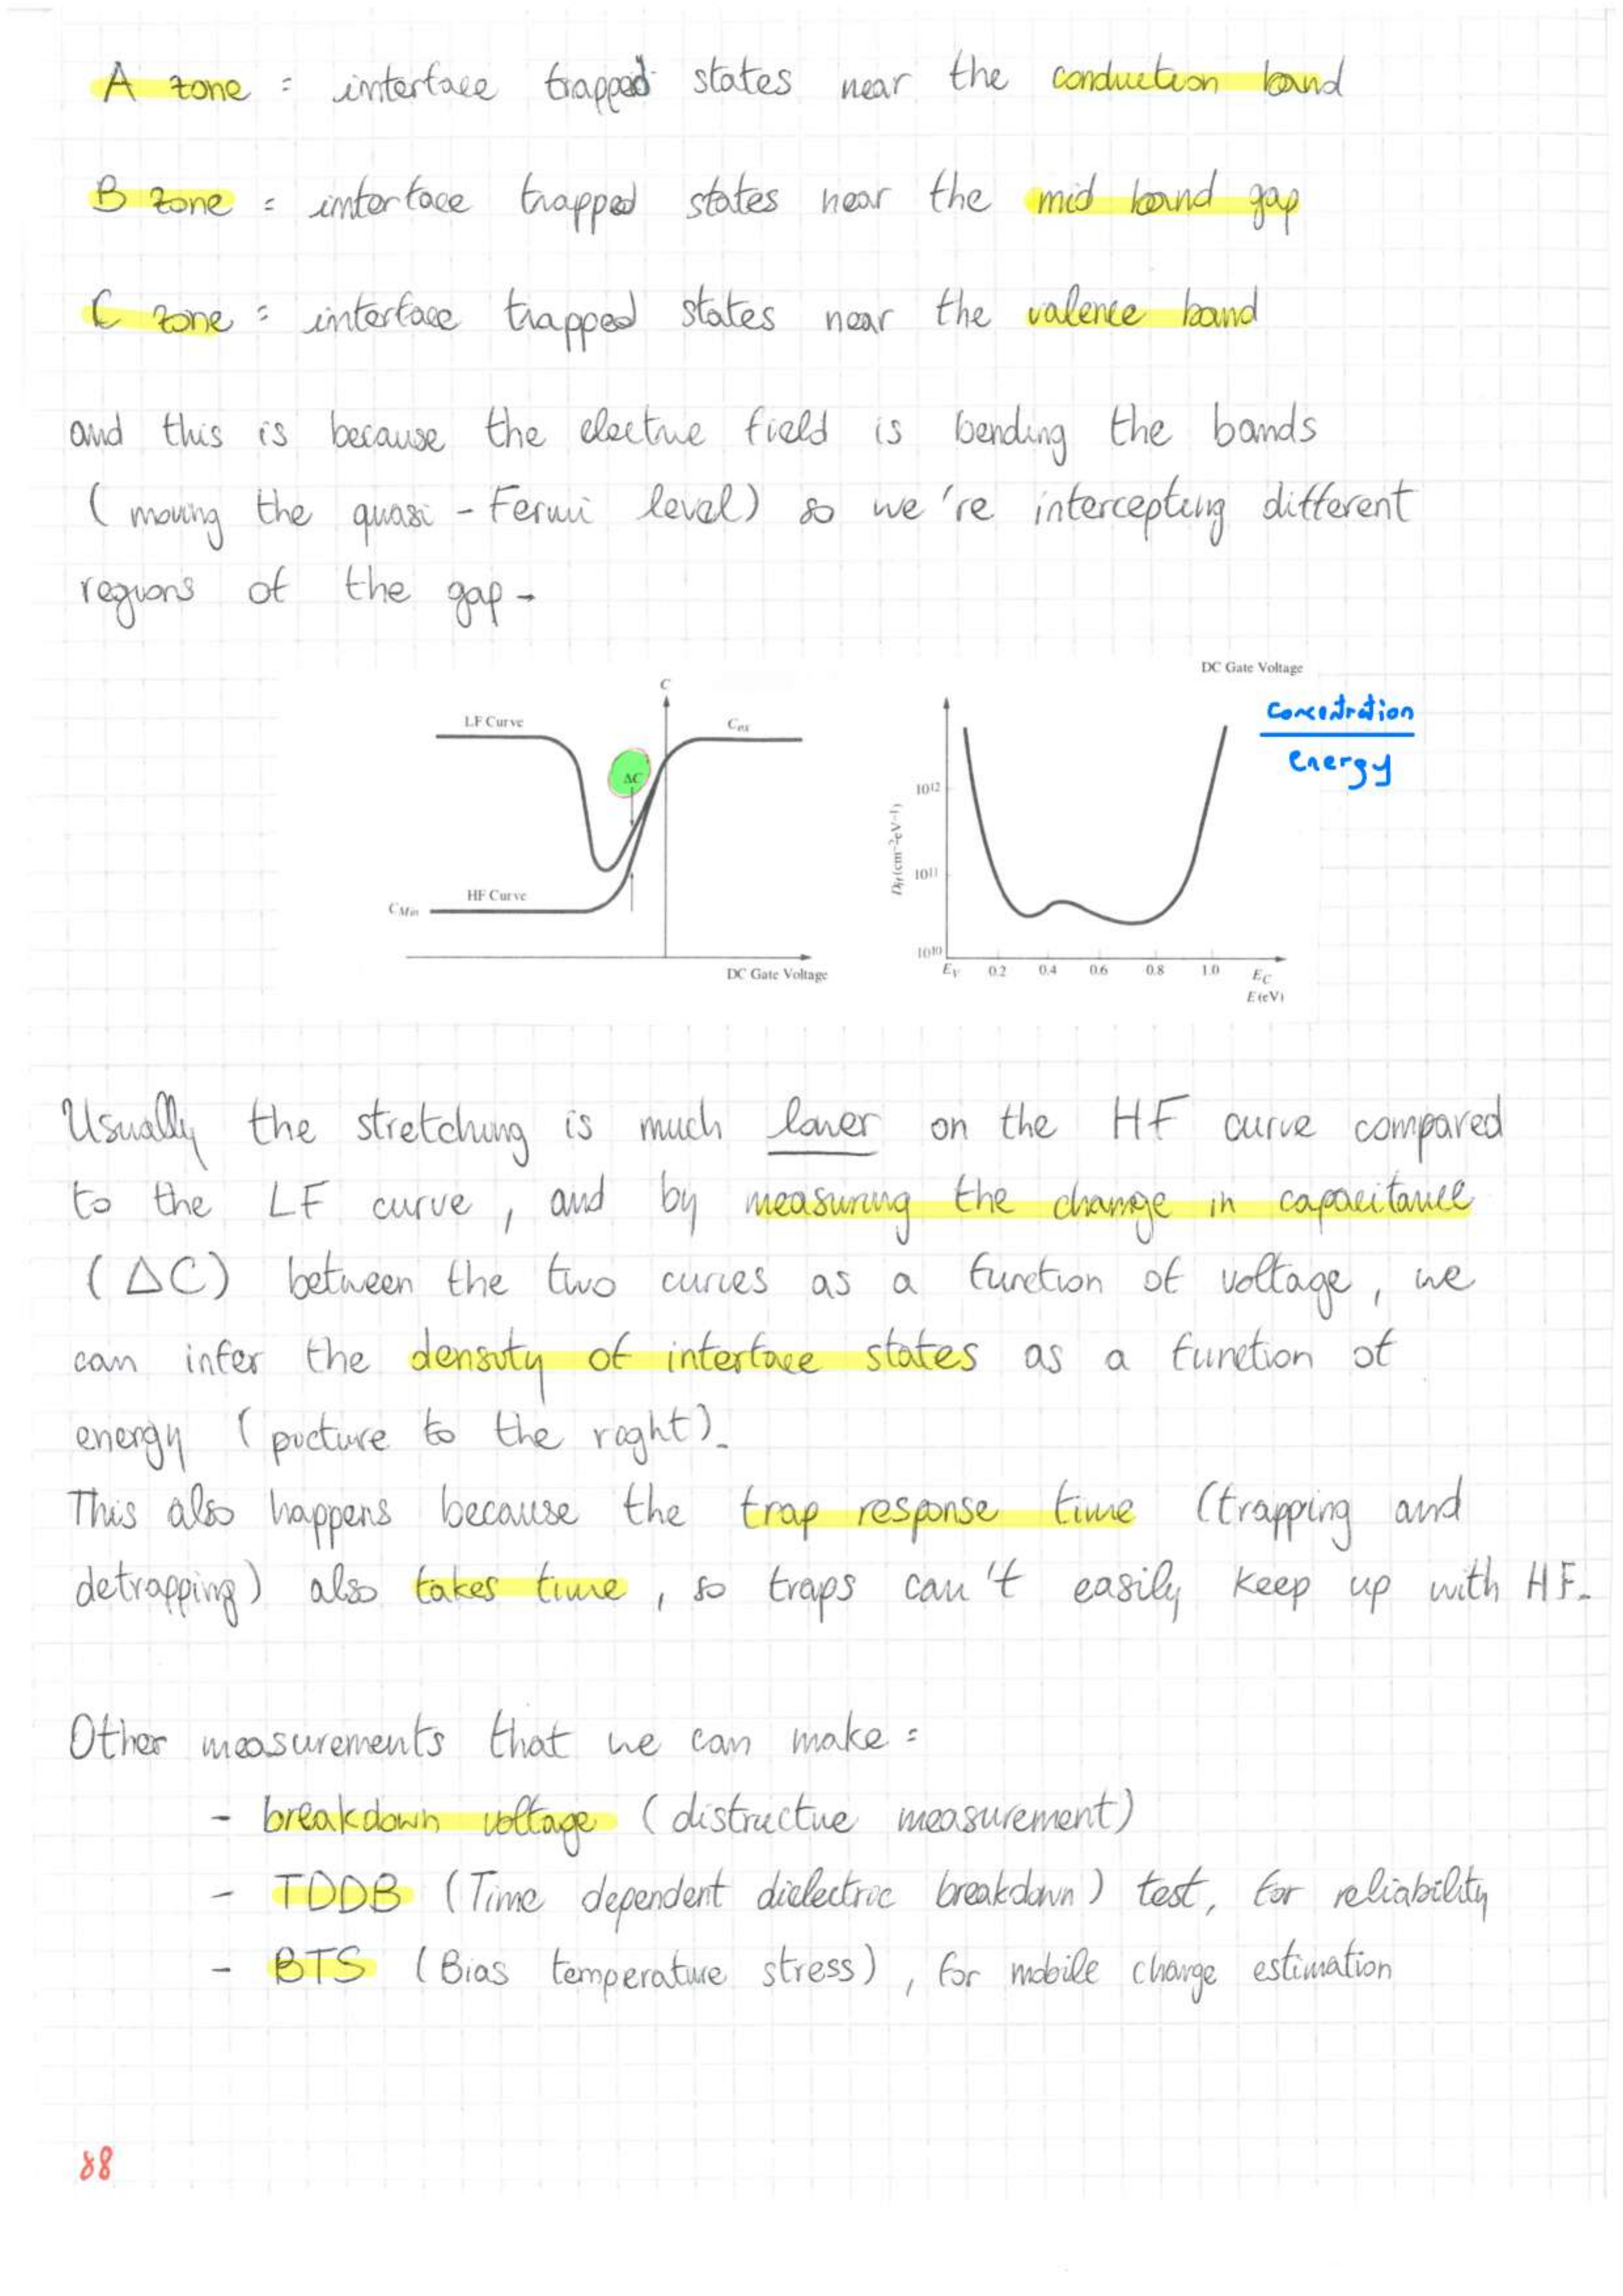 A zone = interface trapped states near the conduction band
B zone = interface trapped states near the mid band gap
C zone = interface trapped states near the valence band
and this is because the electric field is bending the bands
(moving the quasi-Fermi level) so we're intercepting different
regions of the gap.
DC Gate Voltage
Concentration
Energy
C
LF Curve
Cox
ΔC
HF Curve
CMin
DC Gate Voltage
Dit(cm⁻²eV⁻¹)
10¹²
10¹¹
10¹⁰
EV 0.2 0.4 0.6 0.8 1.0 EC
E(eV)
Usually the stretching is much lower on the HF curve compared
to the LF curve, and by measuring the change in capacitance
(ΔC) between the two curves as a function of voltage, we
can infer the density of interface states as a function of
energy (picture to the right).
This also happens because the trap response time (trapping and
detrapping) also takes time, so traps can't easily keep up with HF.
Other measurements that we can make:
- breakdown voltage (distructive measurement)
- TDDB (Time dependent dielectric breakdown) test, for reliability
- BTS (Bias temperature stress), for mobile charge estimation
88